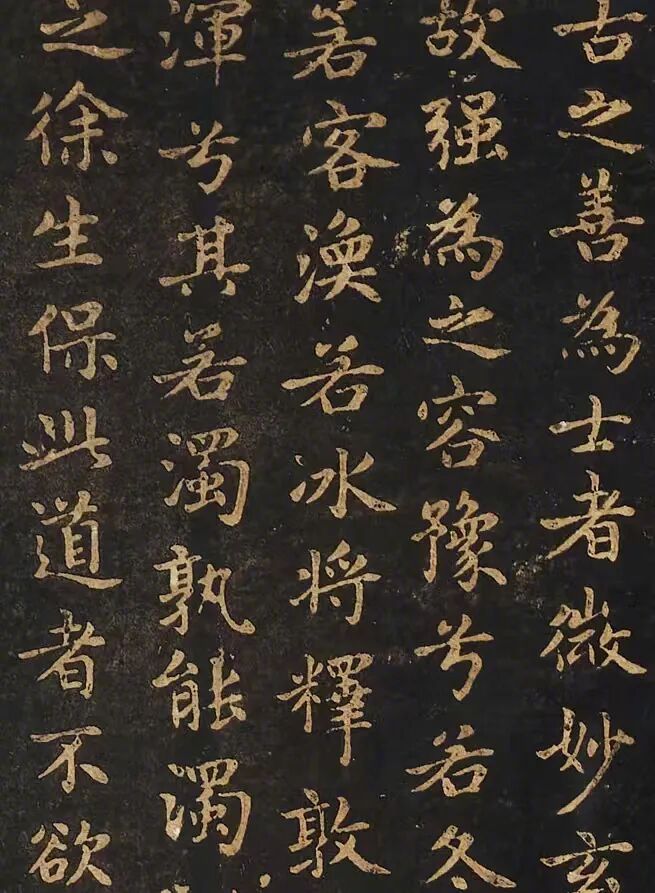 古之善為士者微妙玄
故强為之容豫兮若冬
若客渙若冰将釋敦
渾兮其若濁孰能濁
之徐生保此道者不欲